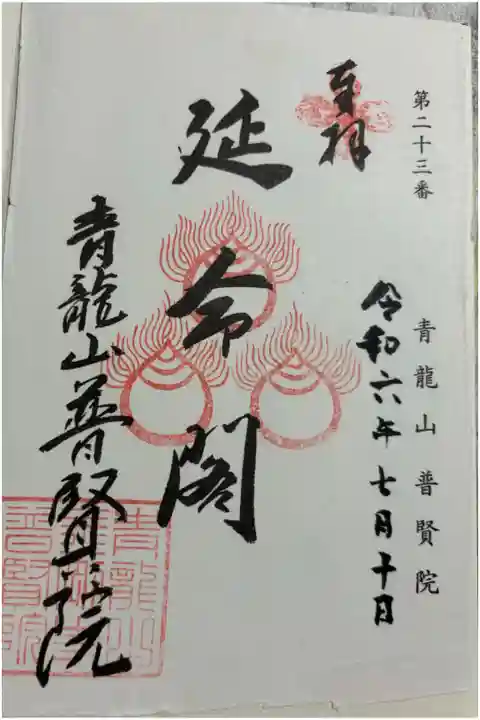 第二十三番
青龍山普賢院
奉拝
令和六年七月十日
延命閣
青龍山普賢院